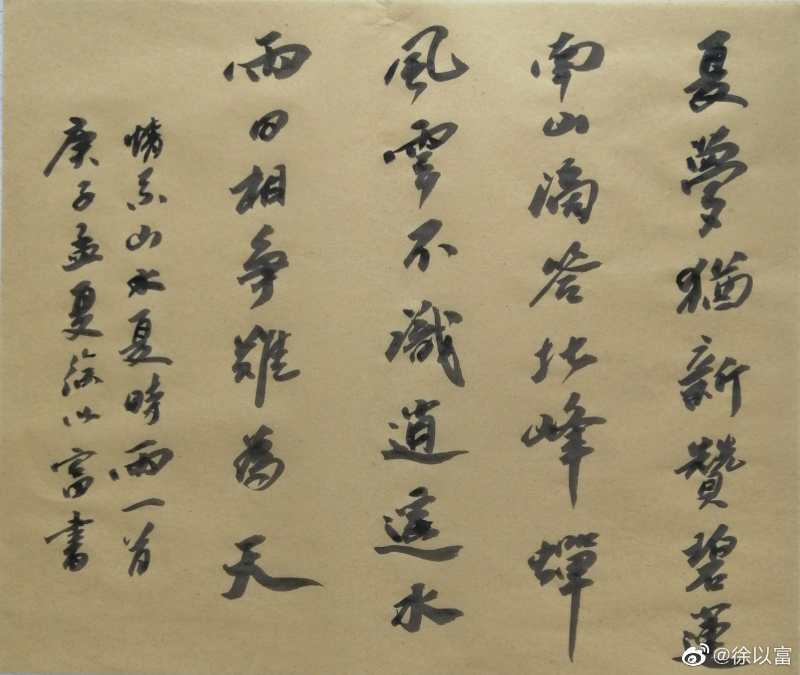 夏夢猶新贊碧蓮
南山滴答北峰蟬
風雲不識逍遙水
雨日相爭難為天
情系山水夏時雨一首
庚子孟夏徐以富書
@徐以富